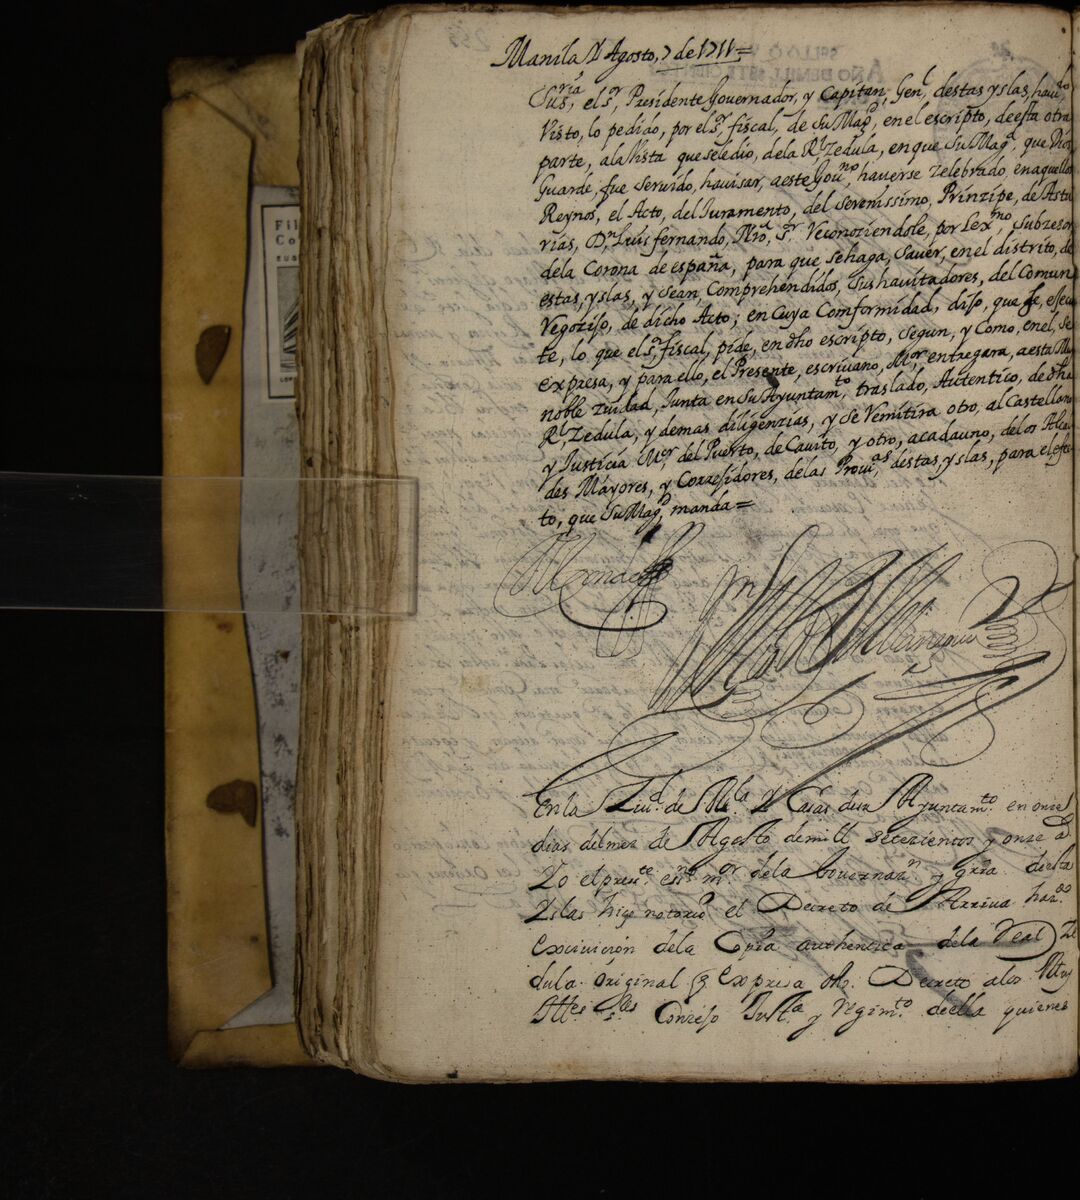 Manila y Agosto, 7 de 1711=
Su sria, el sr, Presidente Governador, y Capitan, Genl, destas yslas, haviendo
Visto, lo pedido, por el sr, fiscal, de Su Magd, en el escripto, de esta otra
parte, a la Vista que se le dio, de la Rl Zedula, en que Su Magd, que Dios
Guarde, fue Servido, havisar, a este Govno, haverse Zelebrado, en aquellos
Reynos, el Acto, del Juramento, del Serenissimo, Prinzipe, de Astu
rias, Dn Luis fernando, Nro, Sr Reconoziendole, por Lexmo, Subzesor
de la Corona de españa, para que se haga, Saver, en el distrito, de
estas, yslas, y Sean, Comprehendidos, Sus havitadores, del Comun
Regozijo, de dicho Acto; en Cuya Comformidad, dijo, que Se, ejecu
te, lo que el Sr, fiscal, pide, en dho escripto, Segun, y Como, en el, Se
expresa, y para ello, el Presente, escrivano, Mor entregara, a esta Muy
noble Zuidad, Junta en Su Ayuntamto, traslado, Autentico, de dha
Rl Zedula, y demas diligenzias, y Se Remitira otro, al Castellano
y Justicia Mor, del Puerto, de Cavito, y otro, a cada uno, de los Alcal
des Mayores, y Corregidores, de las Provas, destas, yslas, para el efec
to, que Su Magd, manda=
En la Ziud. de Mla. y Casas de su Ayuntamto. en onze
dias del mes de Agosto de mill setezientos y onze as
Yo el preste. essno mor de la Governan y Grra. de estas
Yslas hize notorio el Decreto de Arriva hazdo
Excivicion de la Copia authentica de la Real Ze
dula original q Expresa dho. Decreto a los Muy
Illes Sles Conzejo Justa y Regimto. de ella quienes